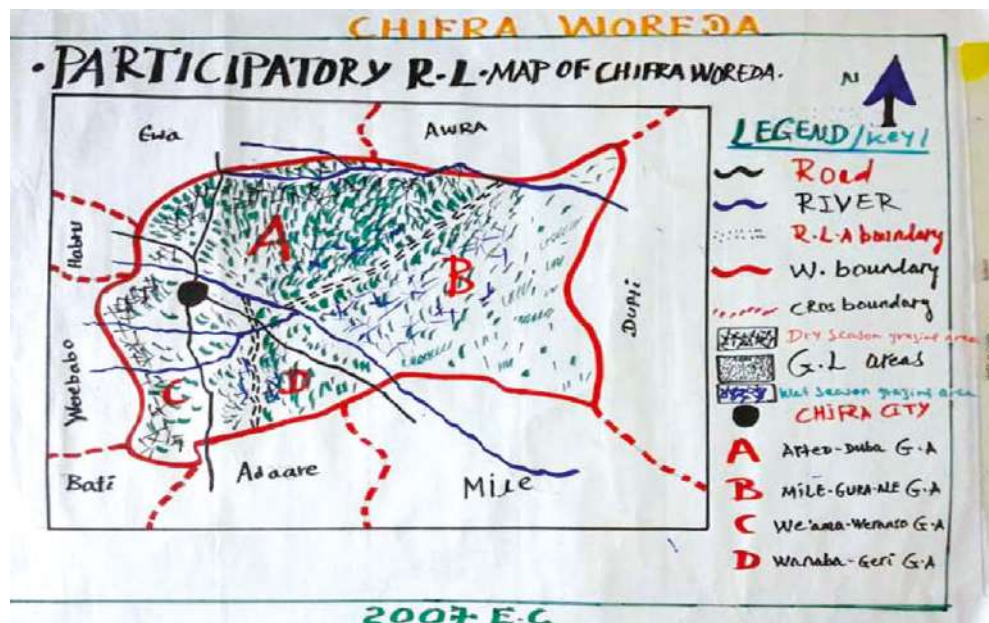 CHIFRA WOREDA
• PARTICIPATORY R.L. MAP OF CHIFRA WOREDA.
N
Ewa
AWRA
Habru
Dupti
Worebabo
Bati
Adaare
Mile
A
B
C
D
LEGEND/key/
Road
RIVER
R.L.A boundary
W. boundary
CROS boundary
Dry Season grazing area
G.L areas
Wet Season grazing area
CHIFRA CITY
A Arteo-Duba G.A
B MILE-GURA-ALE G.A
C We'ama-Weranso G.A
D Wanaba-Geri G.A
2007 E.C